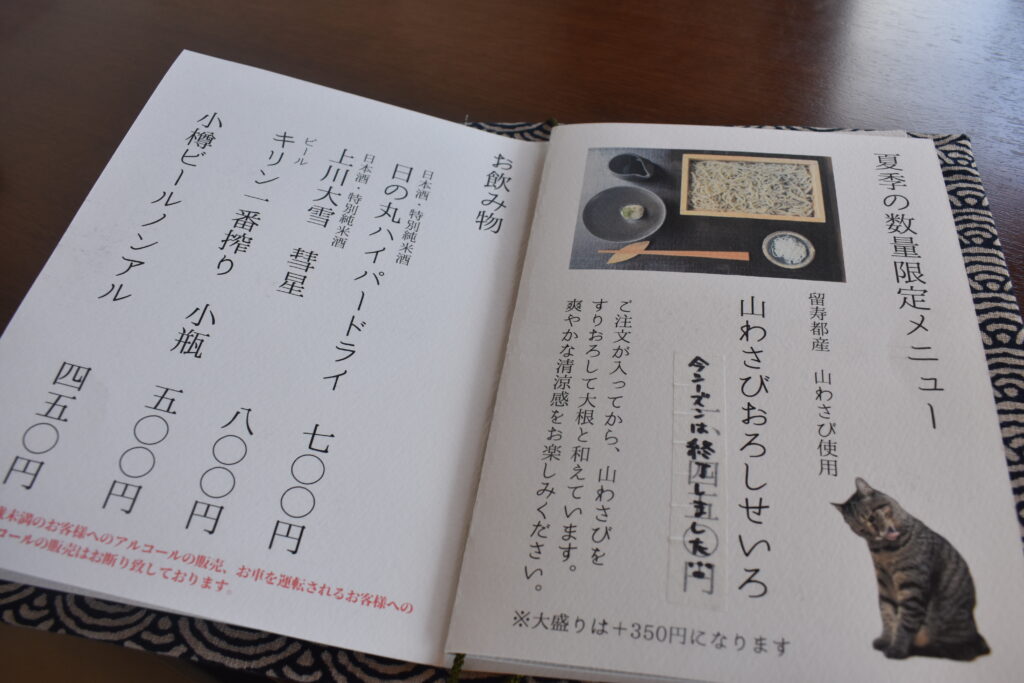 夏季の数量限定メニュー
留寿都産　山わさび使用
山わさびおろしせいろ
四五〇円
今シーズンは、終了しました
ご注文が入ってから、山わさびを
すりおろして大根と和えています。
爽やかな清涼感をお楽しみください。
※大盛りは＋350円になります
お飲み物
日本酒・特別純米酒
日の丸ハイパードライ　七〇〇円
日本酒・特別純米酒
上川大雪　彗星　八〇〇円
ビール
キリン一番搾り　小瓶　五〇〇円
小樽ビールノンアル　四五〇円
未満のお客様へのアルコールの販売、お車を運転されるお客様への
コールの販売はお断り致しております。